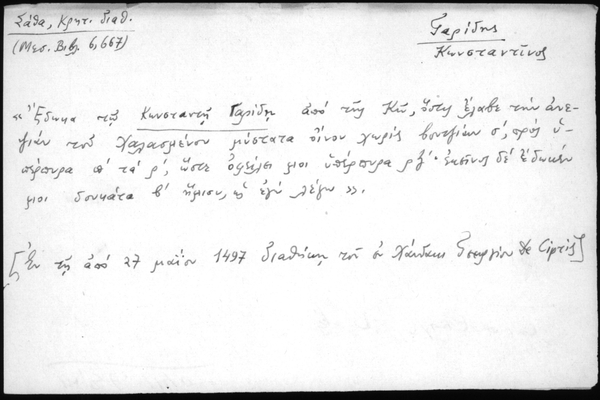 Σάθα, Κρητ. διαθ.
(Μεσ. Βιβλ. 6,667)
Γαρίδης
Κωνσταντῖνος
« Ἔδωκα τῷ Κωνσταντῇ Γαρίδῃ ἀπὸ τῆς Κῶ, ὅστις ἔλαβε τὴν ἀνε-
ψιὰν τοῦ Χαλασμένου μίστατα οἴνου χωρὶς βουτζίων σ', πρὸς ὑ-
πέρπυρα π' τὰ ρ', ὥστε ὀφείλει μοι ὑπέρπυρα ρξ'· ἐκεῖνος δὲ ἔδωκέν
μοι δουκάτα β' ἥμισυ, ὡς ἐγὼ λέγω ».
[Ἐν τῇ ἀπὸ 27 μαΐου 1497 διαθήκῃ τοῦ ἐν Χάνδακι Γεωργίου De Cipris]